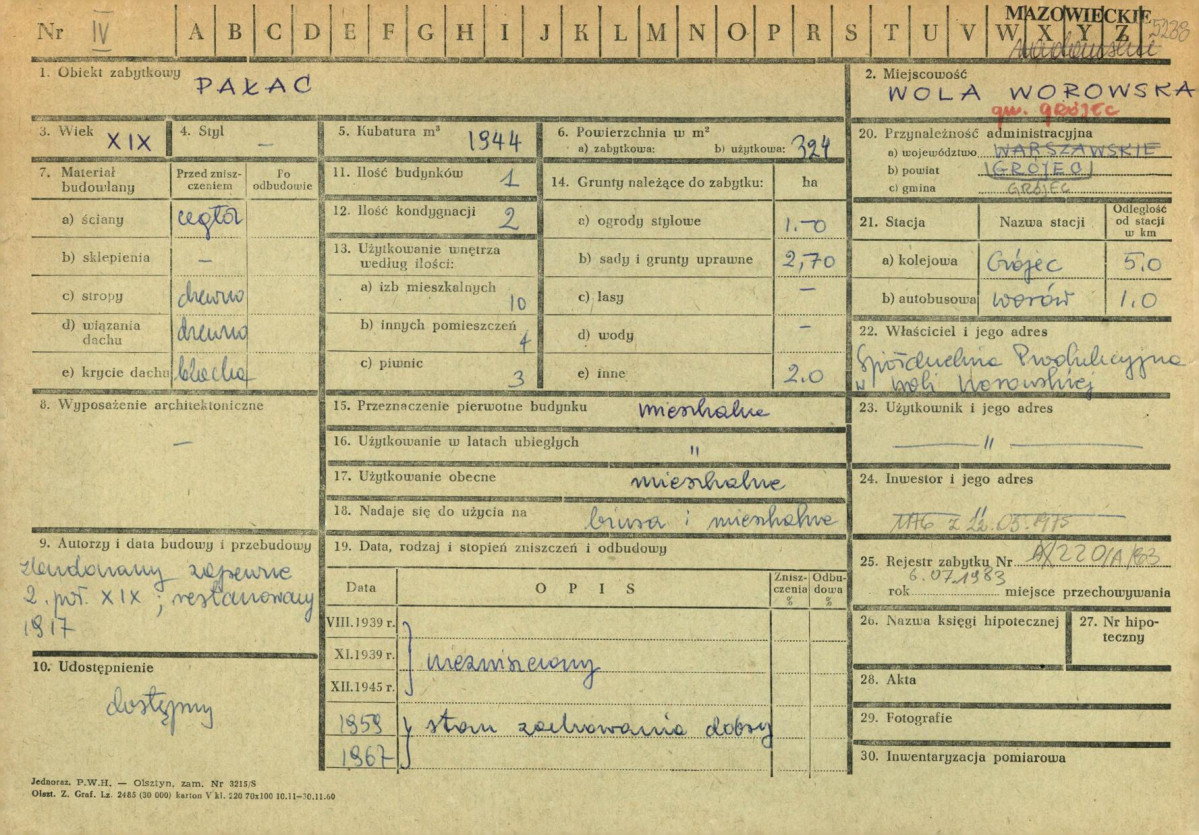 Nr IV A B C D E F G H I J K L M N O P R S T U V W X Y Z
MAZOWIECKIE
5238
1. Obiekt zabytkowy
PAŁAC
2. Miejscowość
WOLA WOROWSKA
gm. GRÓJEC
3. Wiek XIX
4. Styl —
5. Kubatura m³ 1944
6. Powierzchnia w m²
a) zabytkowa: b) użytkowa: 324
7. Materiał budowlany
Przed zniszczeniem
Po odbudowie
a) ściany cegła
b) sklepienia —
c) stropy drewno
d) wiązania dachu drewno
e) krycie dachu blacha
8. Wyposażenie architektoniczne
—
9. Autorzy i data budowy i przebudowy
zbudowany zapewne
2. poł. XIX ; restaurowany
1917
10. Udostępnienie
dostępny
11. Ilość budynków 1
12. Ilość kondygnacji 2
13. Użytkowanie wnętrza
według ilości:
a) izb mieszkalnych 10
b) innych pomieszczeń 4
c) piwnic 3
14. Grunty należące do zabytku: ha
c) ogrody stylowe 1.-0
b) sady i grunty uprawne 2,70
c) lasy —
d) wody —
e) inne 2.0
15. Przeznaczenie pierwotne budynku mieszkalne
16. Użytkowanie w latach ubiegłych "
17. Użytkowanie obecne mieszkalne
18. Nadaje się do użycia na biura i mieszkalne
19. Data, rodzaj i stopień zniszczeń i odbudowy
Data OPIS Zniszczenia % Odbudowa %
VIII.1939 r.
XI.1939 r. niezniszczony
XII.1945 r.
1959 stan zachowania dobry
1967
20. Przynależność administracyjna
a) województwo WARSZAWSKIE
b) powiat GRÓJEC
c) gmina GRÓJEC
21. Stacja Nazwa stacji Odległość od stacji w km
a) kolejowa Grójec 5.0
b) autobusowa Worów 1.0
22. Właściciel i jego adres
Spółdzielnia Produkcyjna
w Woli Worowskiej
23. Użytkownik i jego adres
— " —
24. Inwestor i jego adres
"
1176 z 22.05.1975
25. Rejestr zabytku Nr A/220/A/83
6.07.1983
rok miejsce przechowywania
26. Nazwa księgi hipotecznej
27. Nr hipoteczny
28. Akta
29. Fotografie
30. Inwentaryzacja pomiarowa
Jednoraz. P.W.H. — Olsztyn, zam. Nr 3215/S
Olszt. Z. Graf. Lz. 2485 (30 000) karton V kl. 220 70x100 10.11—30.11.60